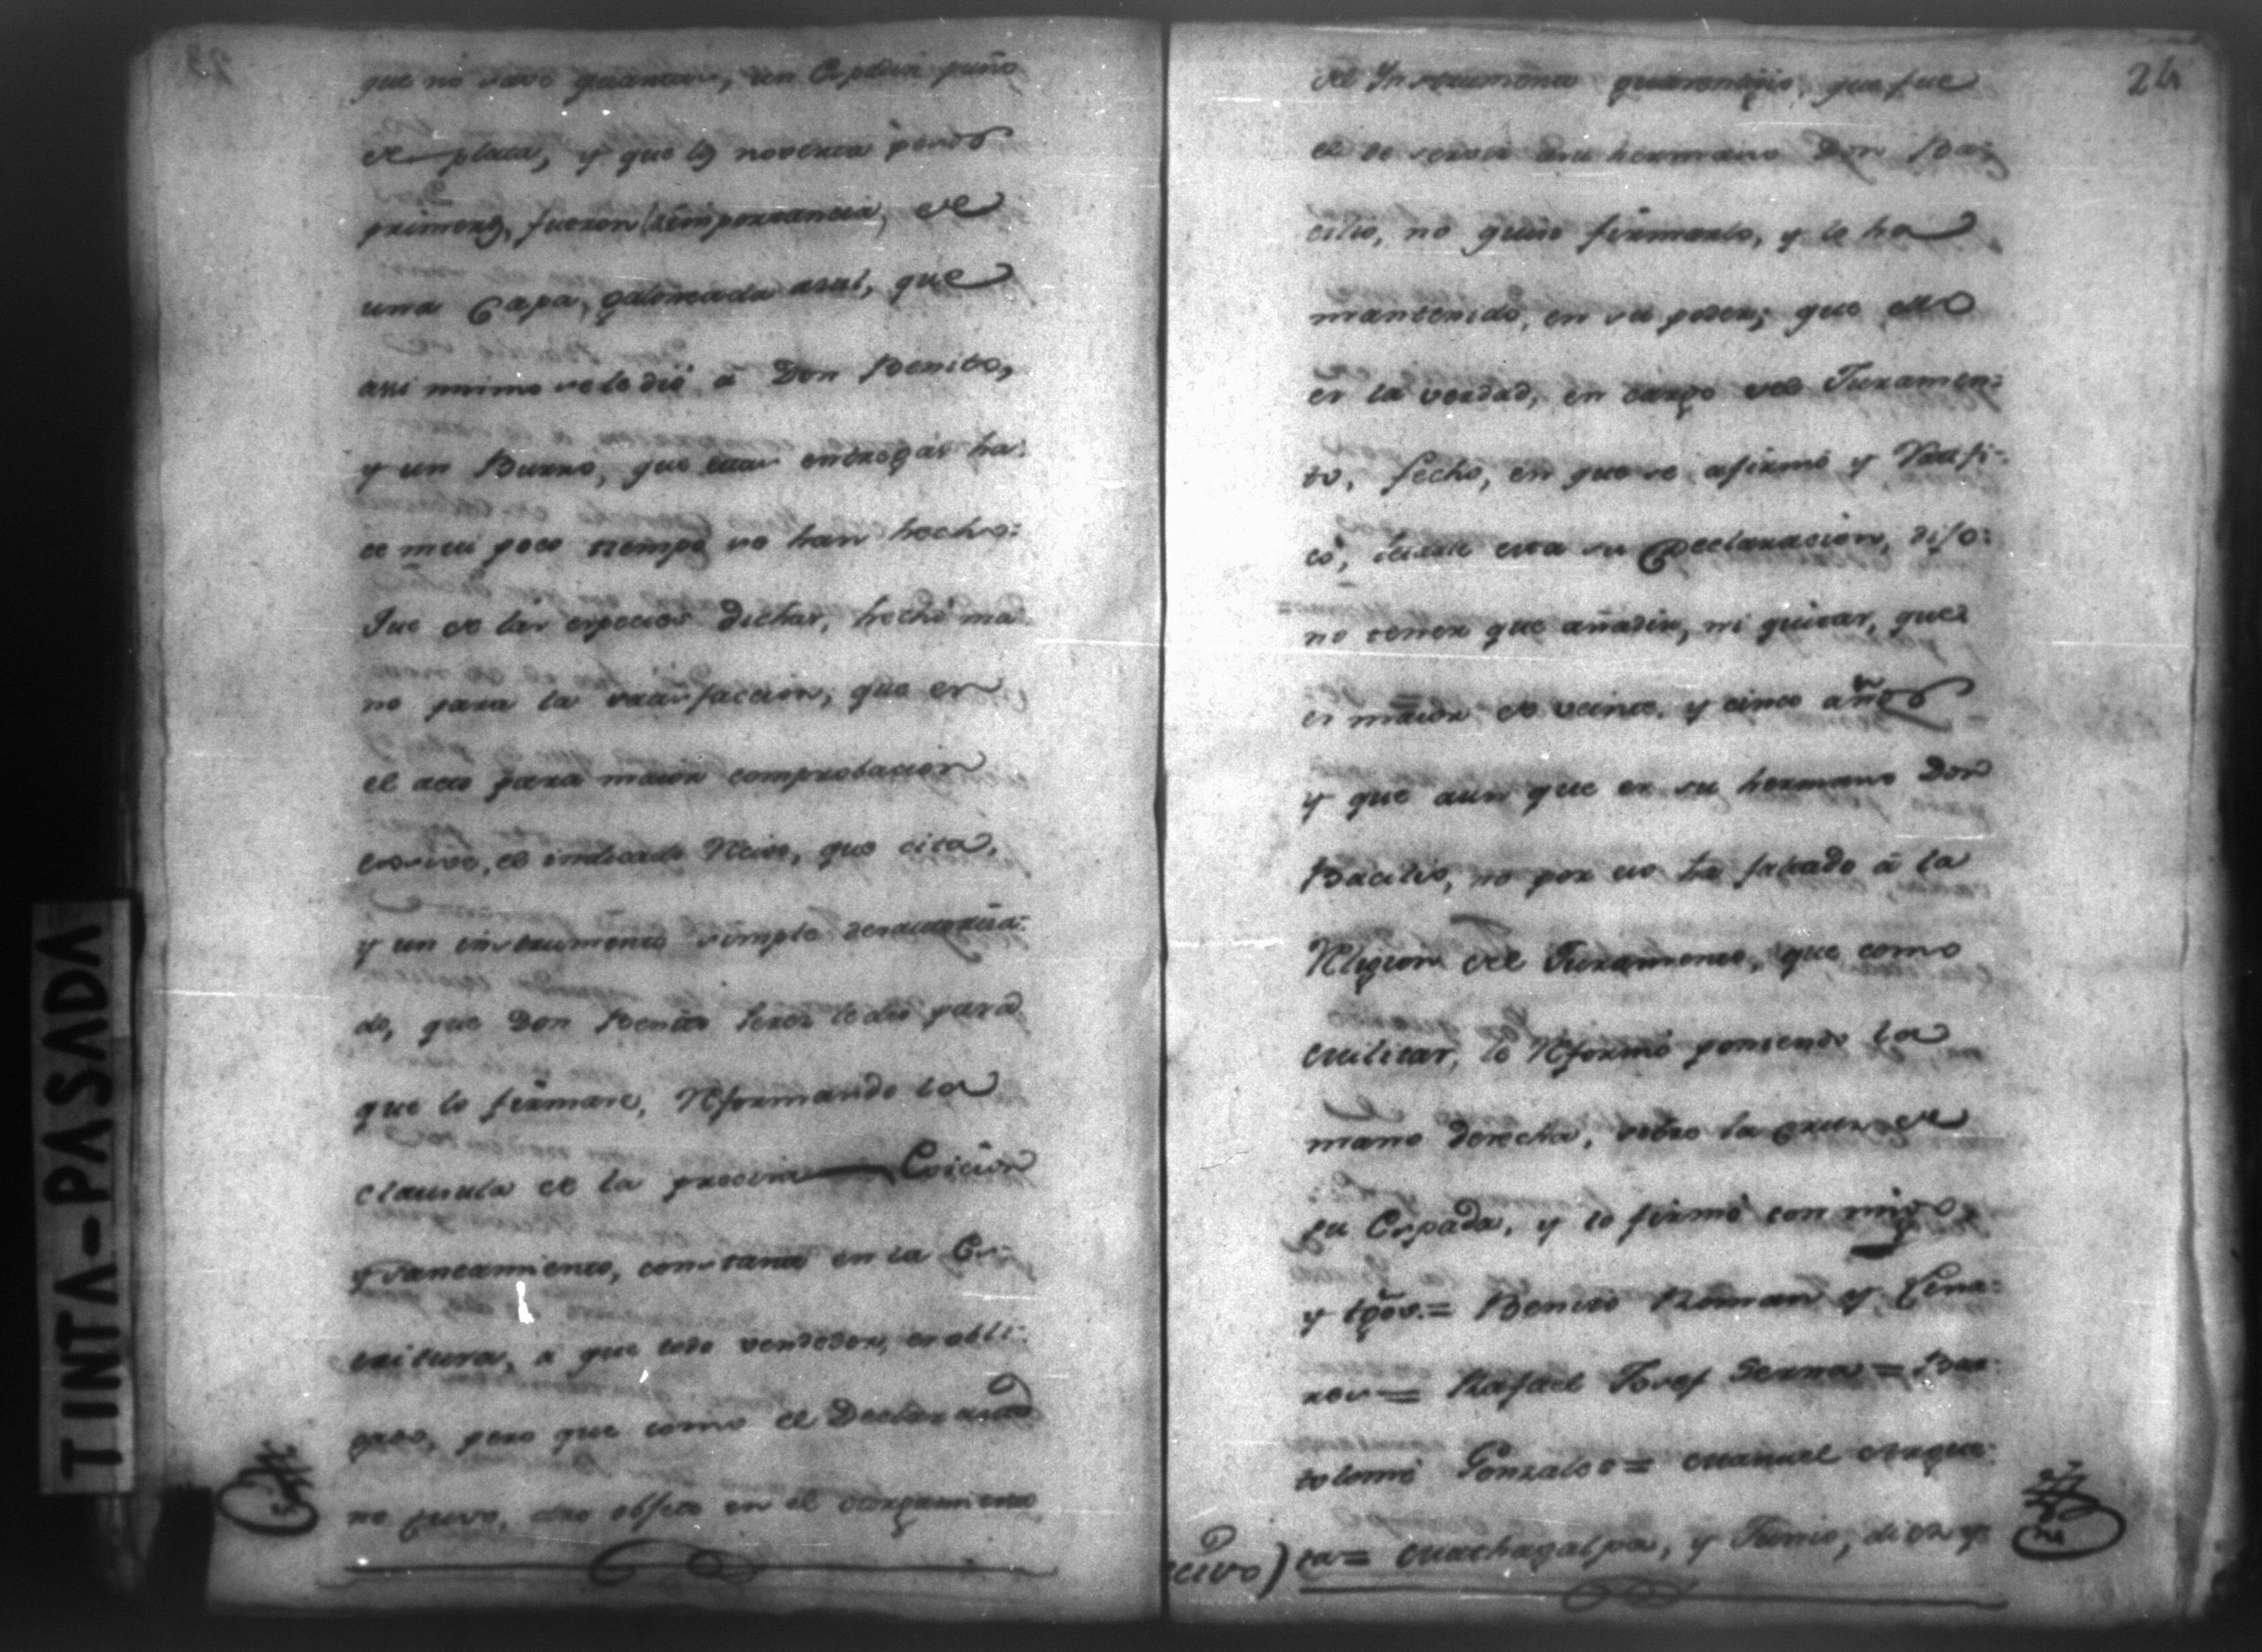 que no save quantos, un Espadin puño
de plata, y que los noventa pesos
primeros, fueron importancia, de
una Capa, galoneada asul, que
assi mismo se le dió à Don Benito,
y un Burro, que entregar ha
ce mui poco tiempo se han hecho:
Que de las especies dichas, hechó ma
no para la satisfaccion, que en
el acto para maior comprobacion
exsive, el indicado Recivo, que cita,
y un instrumento simple
do, que Don Benito Perez le dió para
que lo firmase, Reformando la
clausula de la precisa Eviccion
y saneamiento, constante en la Es-
critura, a que todo vendedor, es obli-
gado, pero que como el Declarante
no tuvo, otro objeto en el otorgamiento
24
del Instrumento quarentigio, que fue
el de servir a su hermano Don Ba-
cilio, no quiso firmarlo, y lo ha
mantenido, en su poder; que esto
es la verdad, en cargo del Juramen-
to, fecho, en que se afirmó y Ratifi-
có, leidole esta su Declarasion, dijo:
no tener que añadir, ni quitar, que
es maior de veinte, y cinco años
y que aun que es su hermano Don
Bacilio, no por eso ha faltado à la
Religion del Juramento, que como
Militar, lo Reformó poniendo la
mano derecha, sobre la cruz de
su Espada, y lo firmó con migo,
y tgõs.= Benito Roman y Cisne-
ros= Rafael Josef Serna= Bar-
tolomé Gonzales= Manuel Arque-
ta= Mathagalpa, y Junio, diez y
TINTA-PASADA